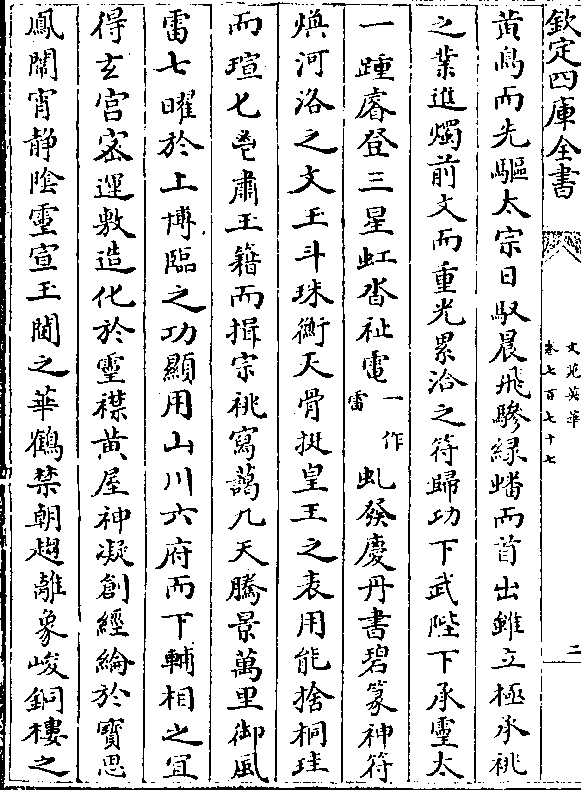 欽定四庫全書
文苑英華
卷七百七十七
二
黄鳥而先驅太宗日馭晨飛驂緑螭而首出雖立極承祧
之業進燭前文而重光累洽之符歸功下武陛下承靈太
一踵睿登三星虹沓祉電一作雷虬發慶丹書碧篆神符
煥河洛之文玉斗珠衡天骨挺皇王之表用能捨桐珪
而瑄七鬯肅玉籍而揖宗祧寫藹九天騰景萬里御風
雷七曜於上博臨之功顯用山川六府而下輔相之宜
得玄宫宻運敷造化於靈襟黄屋神凝創經綸於寳思
鳳闈宵静陰靈宣玉閫之華鶴禁朝趨離象峻銅樓之